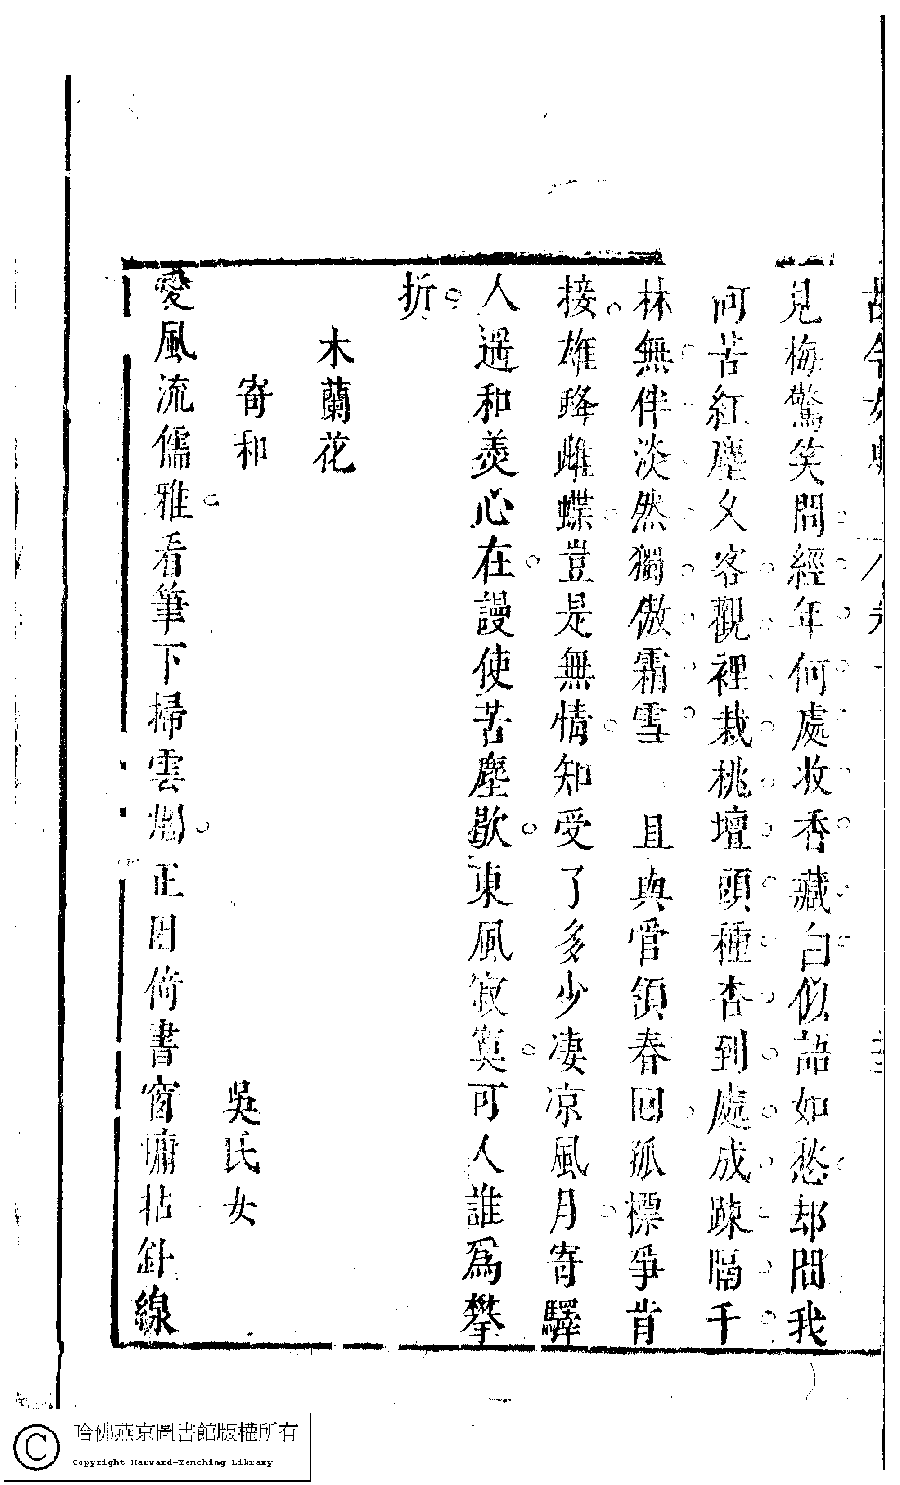 古今女史 八卷
見梅驚笑問經年何處收香藏白似語如愁却問我
何苦紅塵久客觀裡栽桃壇頭種杏到處成踈隔千
林無伴淡然獨傲霜雪 且與管領春回孤標爭肯
接雄蜂雌蝶豈是無情知受了多少凄凉風月寄驛
人遥和羮心在謾使苦塵歇東風寂寞可人誰爲攀
折
木蘭花
寄和
吳氏女
愛風流儒雅看筆下掃雲烟正困倚書窗慵拈針線
哈佛燕京圖書館版權所有
Copyright Harvard-Yenching Library